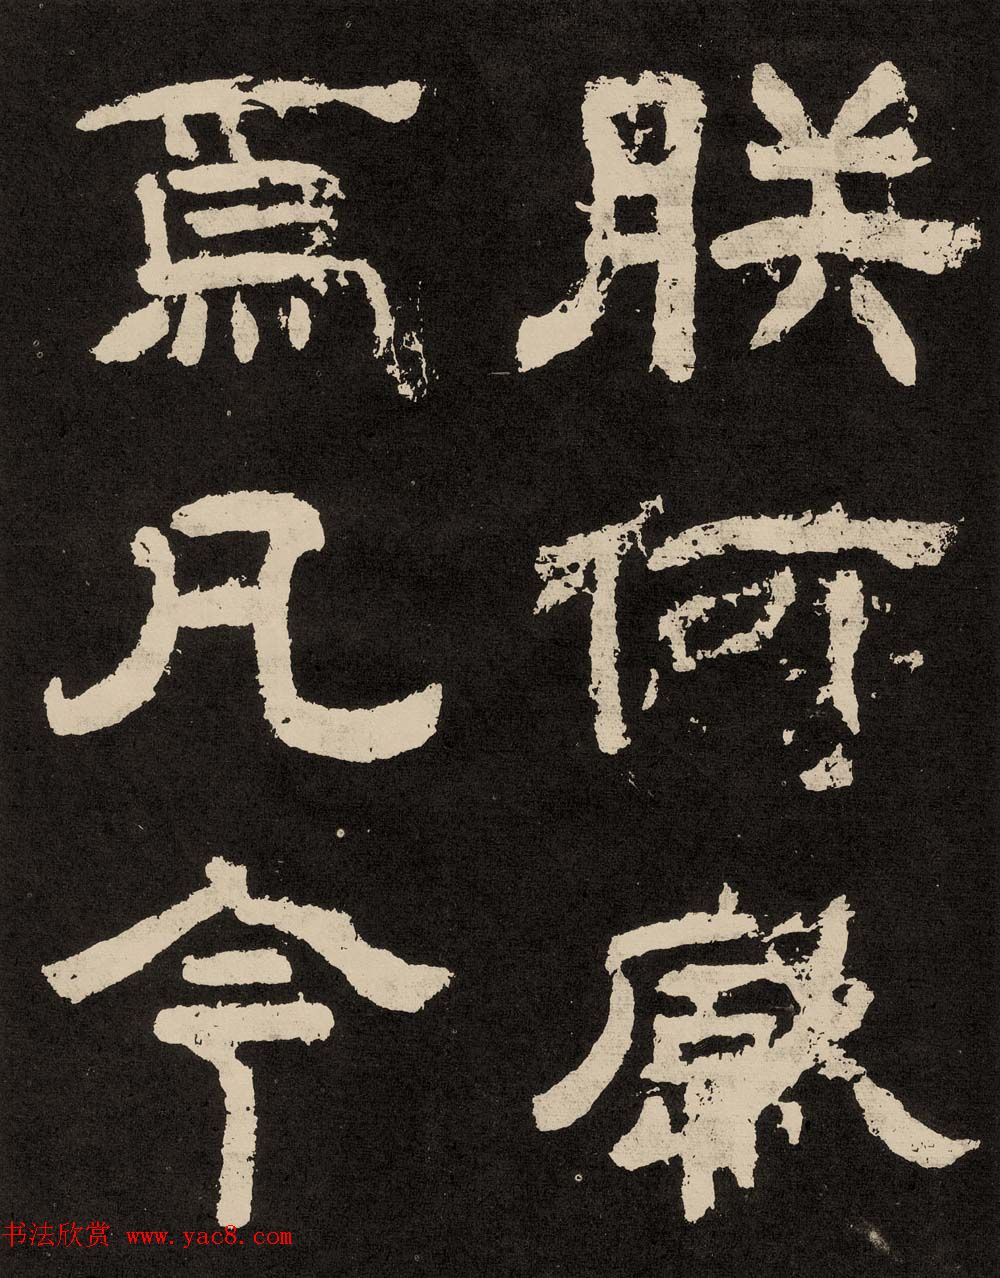 朕何
焉凡今
书法欣赏 www.yac8.com